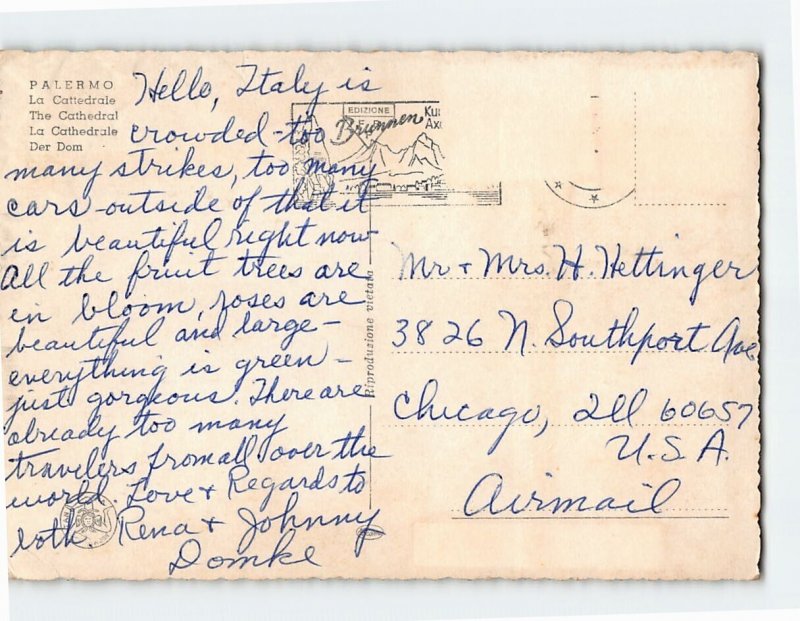 PALERMO
La Cattedrale
The Cathedral
La Cathedrale
Der Dom
Hello, Italy is
crowded-too
many strikes, too many
cars-outside of that it
is beautiful right now
All the fruit trees are
in bloom, roses are
beautiful and large-
everything is green-
just gorgeous. There are
already too many
travelers from all over the
world. Love + Regards to
both. Rena + Johnny
Domke
EDIZIONE
Brunnen
Riproduzione vietata
Mr + Mrs. H. Hettinger
3826 N. Southport Ave
Chicago, Ill 60657
U.S.A.
Airmail